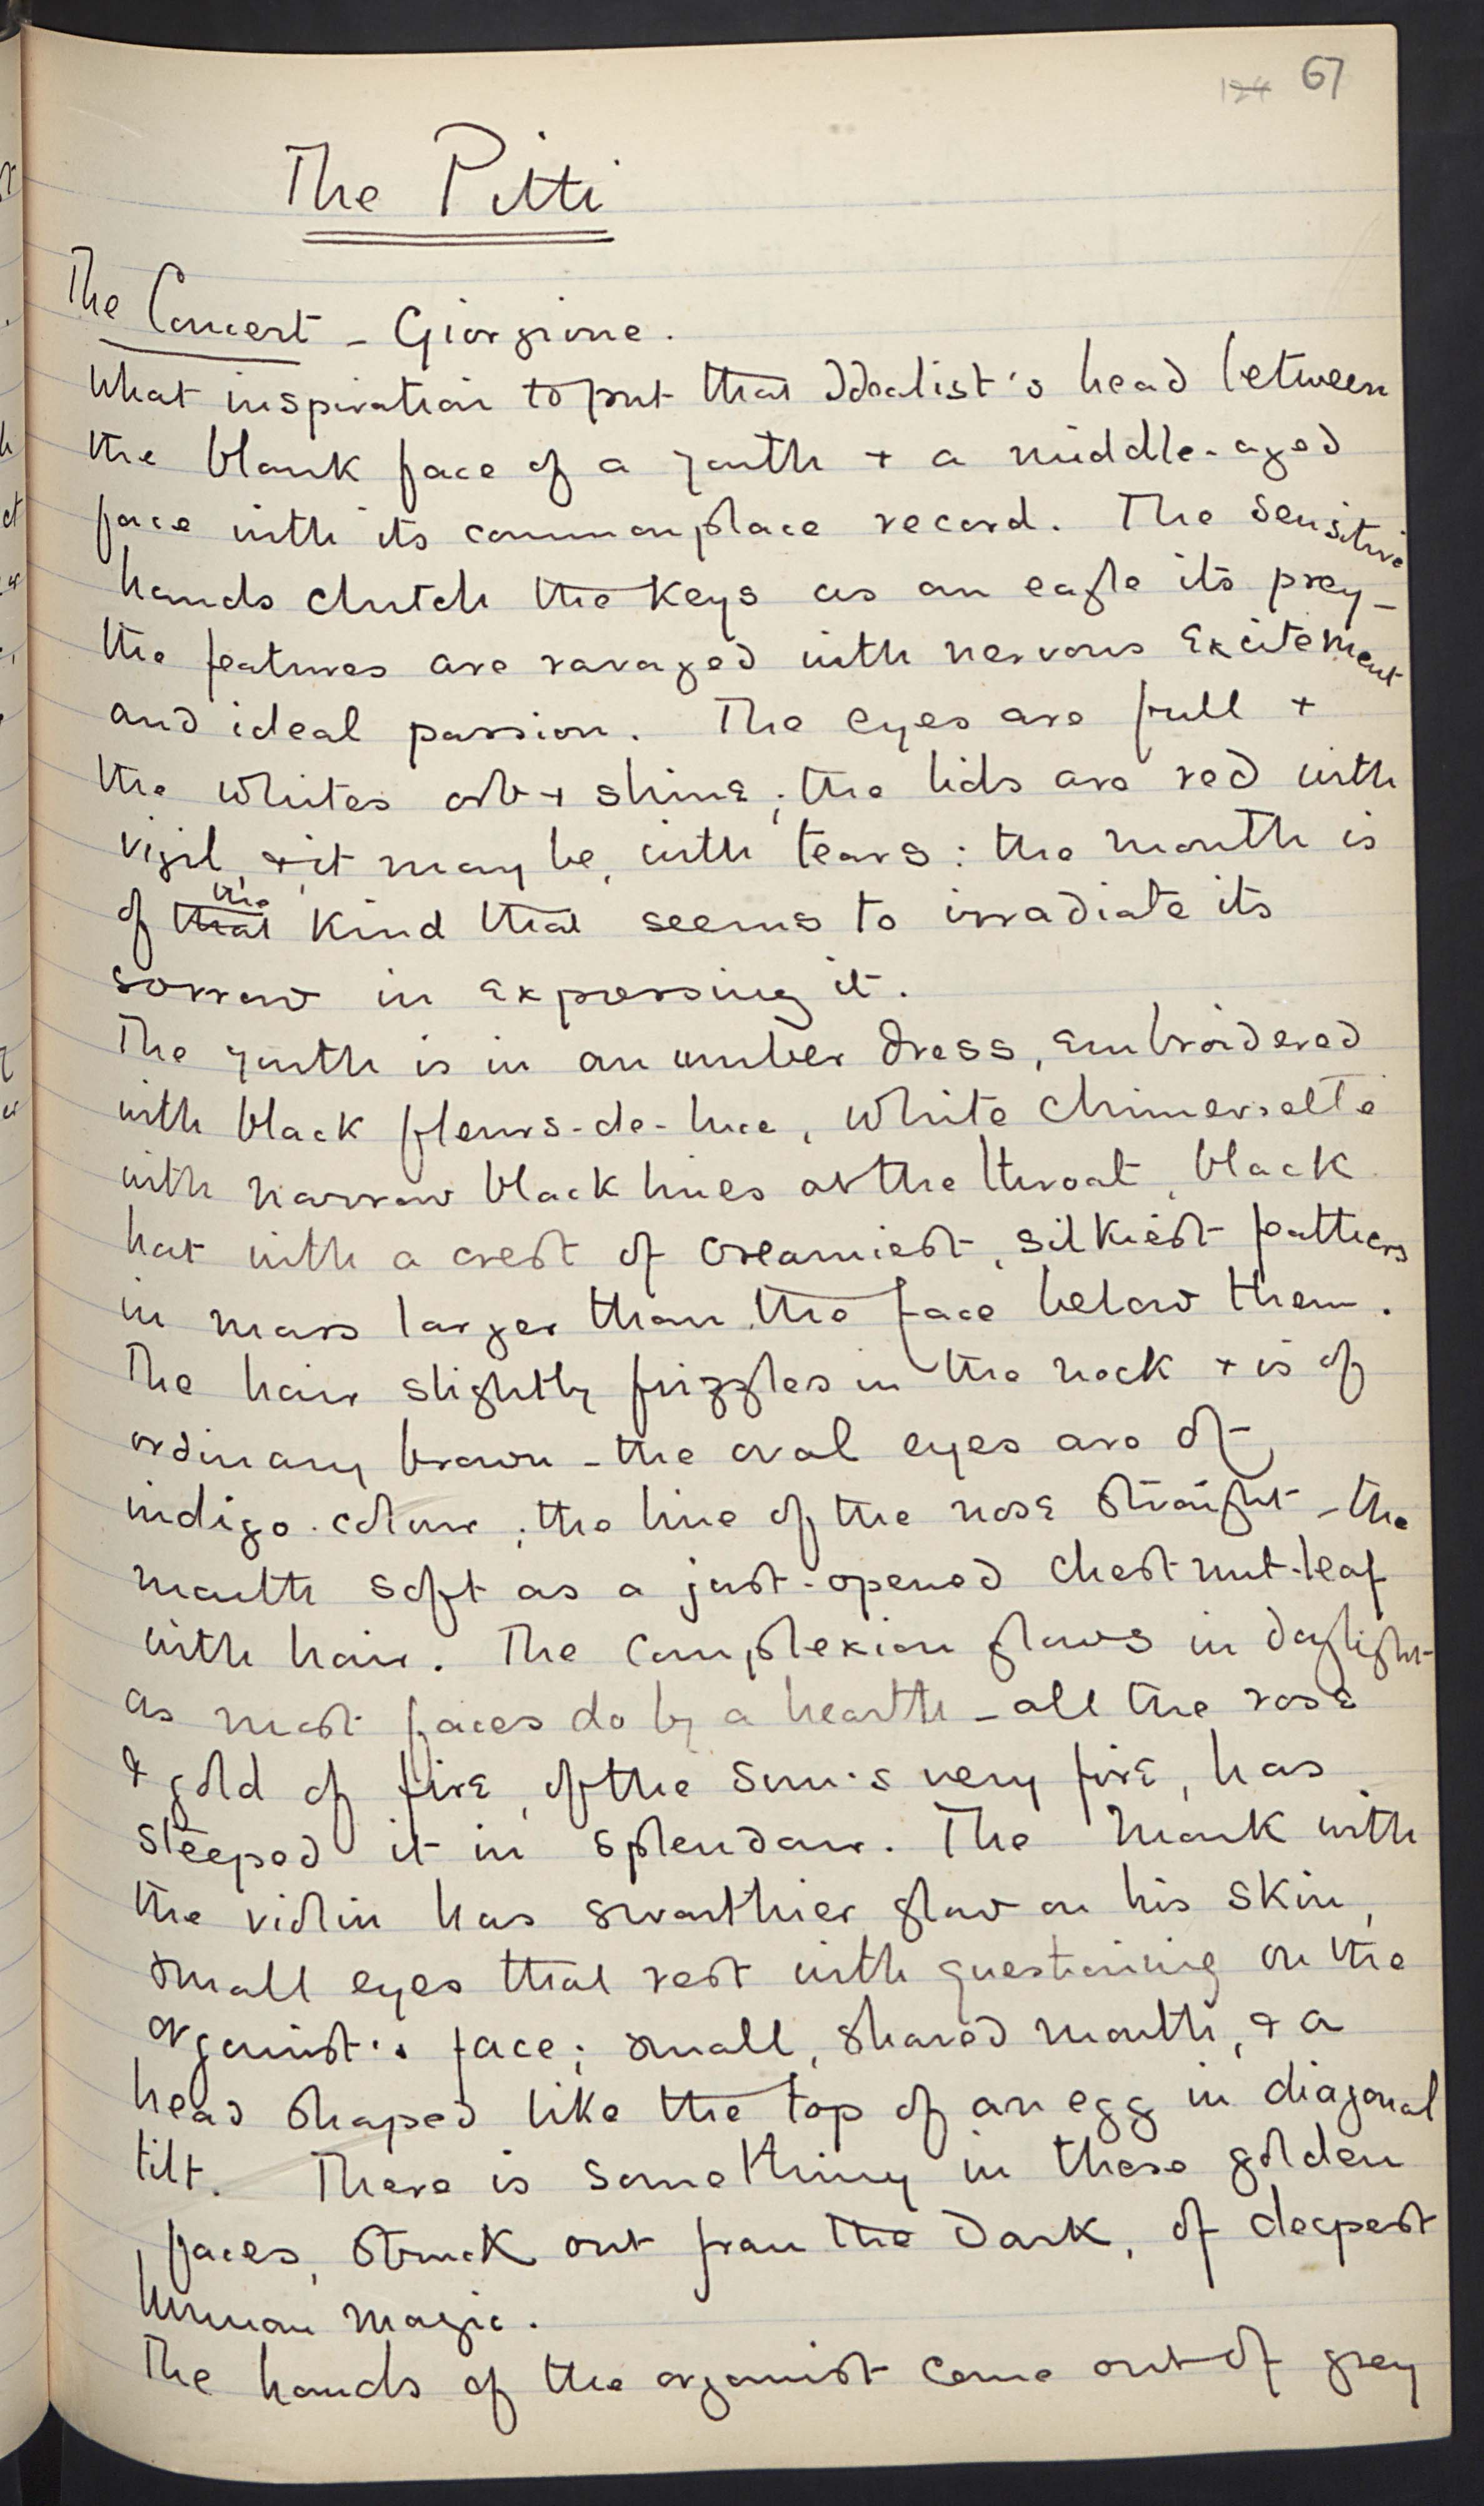 67
The Pitti
The Concert - Giorgione.
What inspiration to put that Idealist's head between
the blank face of a youth + a middle-aged
face with its commonplace record. The sensitive
hands clutch the keys as an eagle its prey -
the features are ravaged with nervous excitement
and ideal passion. The eyes are full +
the whites orb + shine; the lids are red with
vigil, + it may be, with tears: the mouth is
of that the kind that seems to irradiate its
sorrow in expressing it.
The youth is in an umber dress, embroidered
with black fleurs-de-luce, white chimersette
with narrow black lines at the throat, black
hat with a crest of creamiest, silkiest feathers
in mass larger than the face below them.
The hair slightly frizzles in the neck + is of
ordinary brown - the oval eyes are of
indigo-colour; the line of the nose straight - the
mouth soft as a just-opened chestnut-leaf
with hair. The complexion glows in daylight
as most faces do by a hearth - all the rose
& gold of fire, of the sun's very fire, has
steeped it in splendour. The Monk with
the violin has swarthier glow on his skin,
small eyes that rest with questioning on the
organist's face; small, shaved mouth, & a
head shaped like the top of an egg in diagonal
tilt. There is something in these golden
faces, struck out from the dark, of deepest
human magic.
The hands of the organist come out of grey